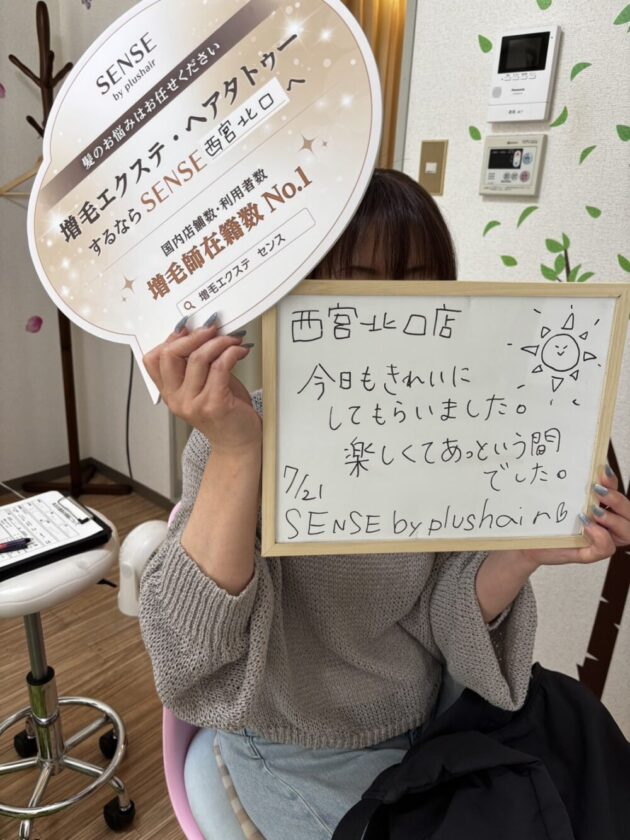 SENSE
by plushair
髪のお悩みはお任せください
増毛エクステ・ヘアタトゥー
するなら SENSE 西宮北口 へ
国内店舗数・利用者数
増毛師在籍数 No.1
増毛エクステ センス
西宮北口店
今日もきれいに
してもらいました。
楽しくてあっという間
でした。
7/21
SENSE by plushair
Panasonic